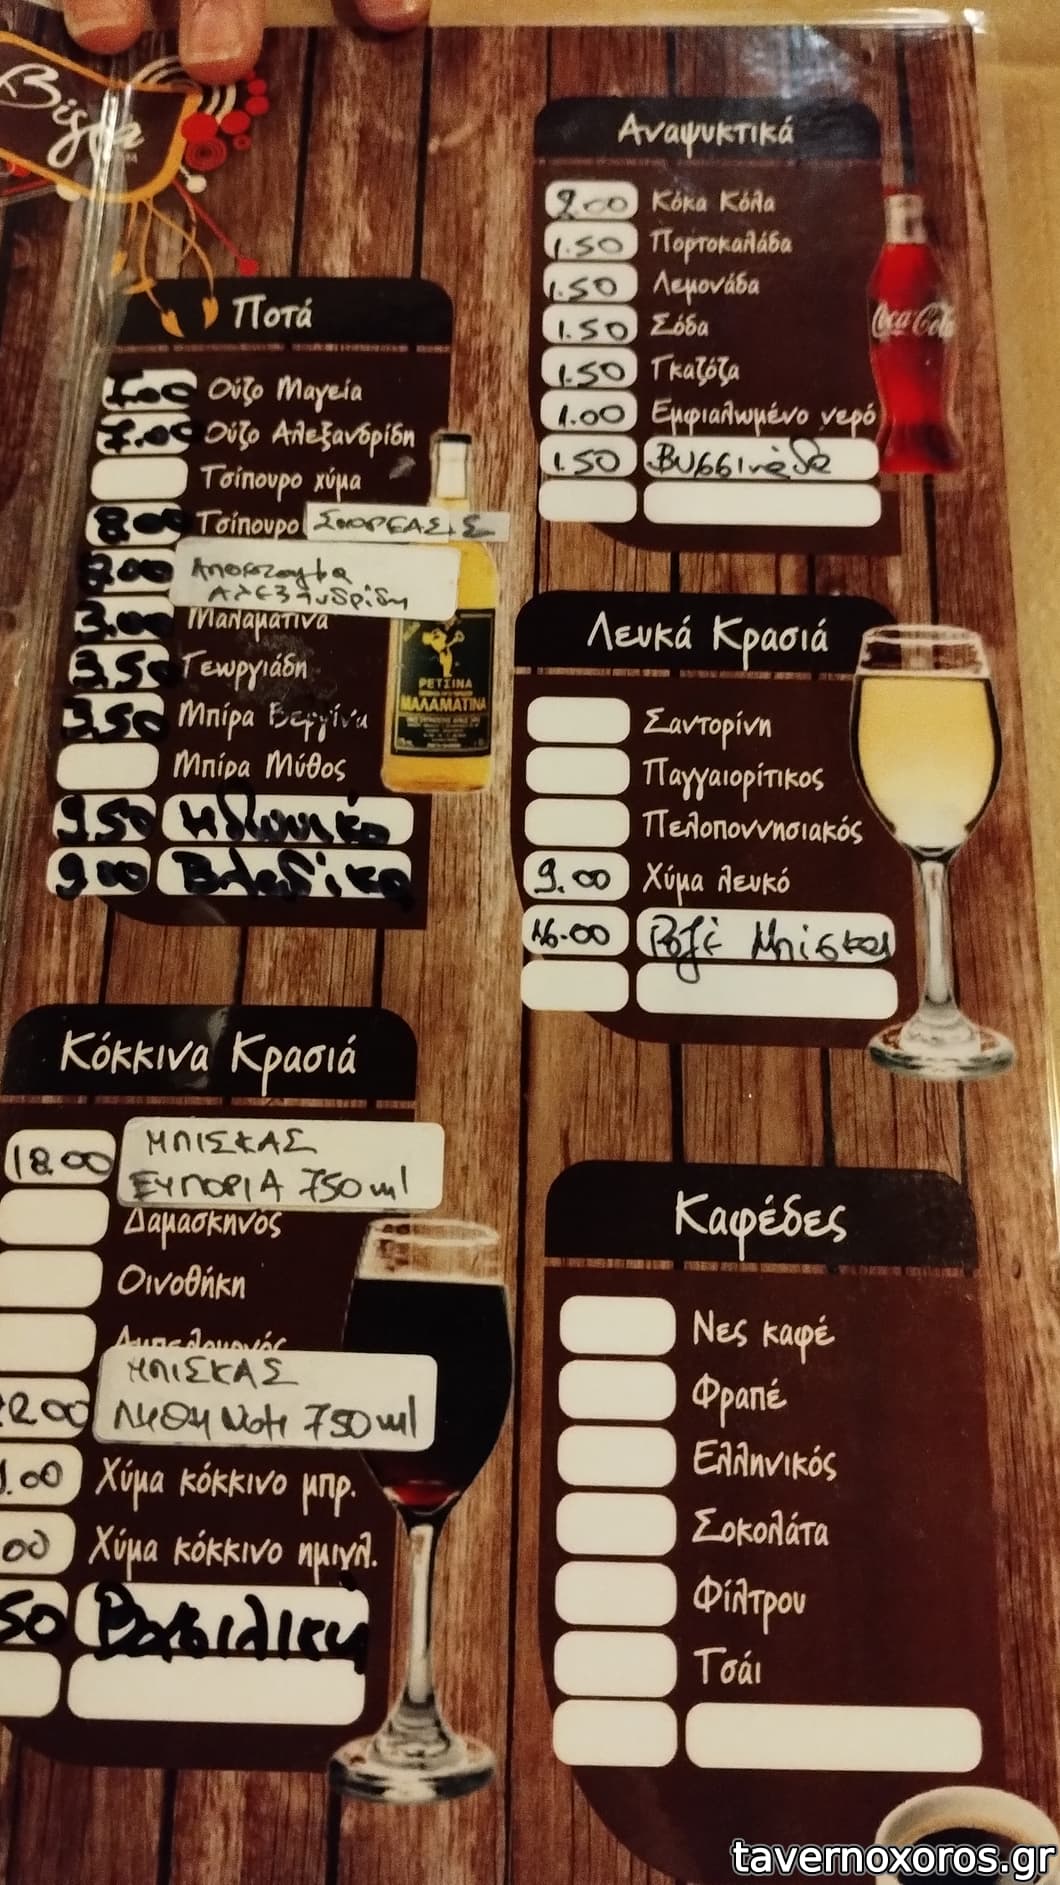 Βίβρα
Αναψυκτικά
2.00 Κόκα Κόλα
1.50 Πορτοκαλάδα
1.50 Λεμονάδα
1.50 Σόδα
1.50 Γκαζόζα
1.00 Εμφιαλωμένο νερό
1.50 Βυσσινάδα
Coca-Cola
Ποτά
Ούζο Μαγεία
7.00 Ούζο Αλεξανδρίδη
Τσίπουρο χύμα
8.00 Τσίπουρο
7.00 Αποσταγμα
Αλεξανδρίδη
3.00 Μαλαματίνα
3.50 Γεωργιάδη
3.50 Μπίρα Βεργίνα
Μπίρα Μύθος
ΡΕΤΣΙΝΑ
ΜΑΛΑΜΑΤΙΝΑ
Λευκά Κρασιά
Σαντορίνη
Παγγαιορίτικος
Πελοποννησιακός
9.00 Χύμα λευκό
16.00 Ροζέ Μπίσκας
Κόκκινα Κρασιά
18.00 ΜΠΙΣΚΑΣ
ΕΥΠΟΡΙΑ 750ml
Δαμασκηνός
Οινοθήκη
ΜΠΙΣΚΑΣ
750ml
.00 Χύμα κόκκινο μπρ.
00 Χύμα κόκκινο ημιγλ.
50 Βασιλική
Καφέδες
Νες καφέ
Φραπέ
Ελληνικός
Σοκολάτα
Φίλτρου
Τσάι
tavernoxoros.gr